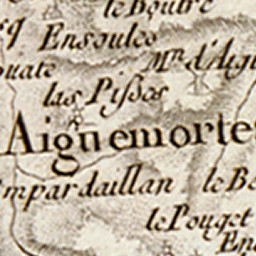 le Boutre
Ensoules
Mn. d'Aigu
ouate
las Pisses
Aiguemortes
mpardaillan
le Be
le Pouget
En